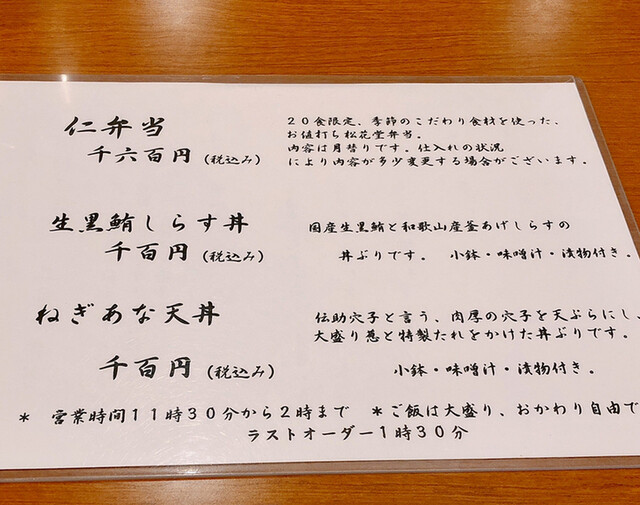 仁弁当
千六百円(税込み)
20食限定、季節のこだわり食材を使った、
お値打ち松花堂弁当。
内容は月替りです。仕入れの状況
により内容が多少変更する場合がございます。
生黒鮪しらす丼
千百円(税込み)
国産生黒鮪と和歌山産釜あげしらすの
丼ぶりです。 小鉢・味噌汁・漬物付き。
ねぎあな天丼
千百円(税込み)
伝助穴子と言う、肉厚の穴子を天ぷらにし、
大盛り葱と特製たれをかけた丼ぶりです。
小鉢・味噌汁・漬物付き。
* 営業時間11時30分から2時まで *ご飯は大盛り、おかわり自由で
ラストオーダー1時30分